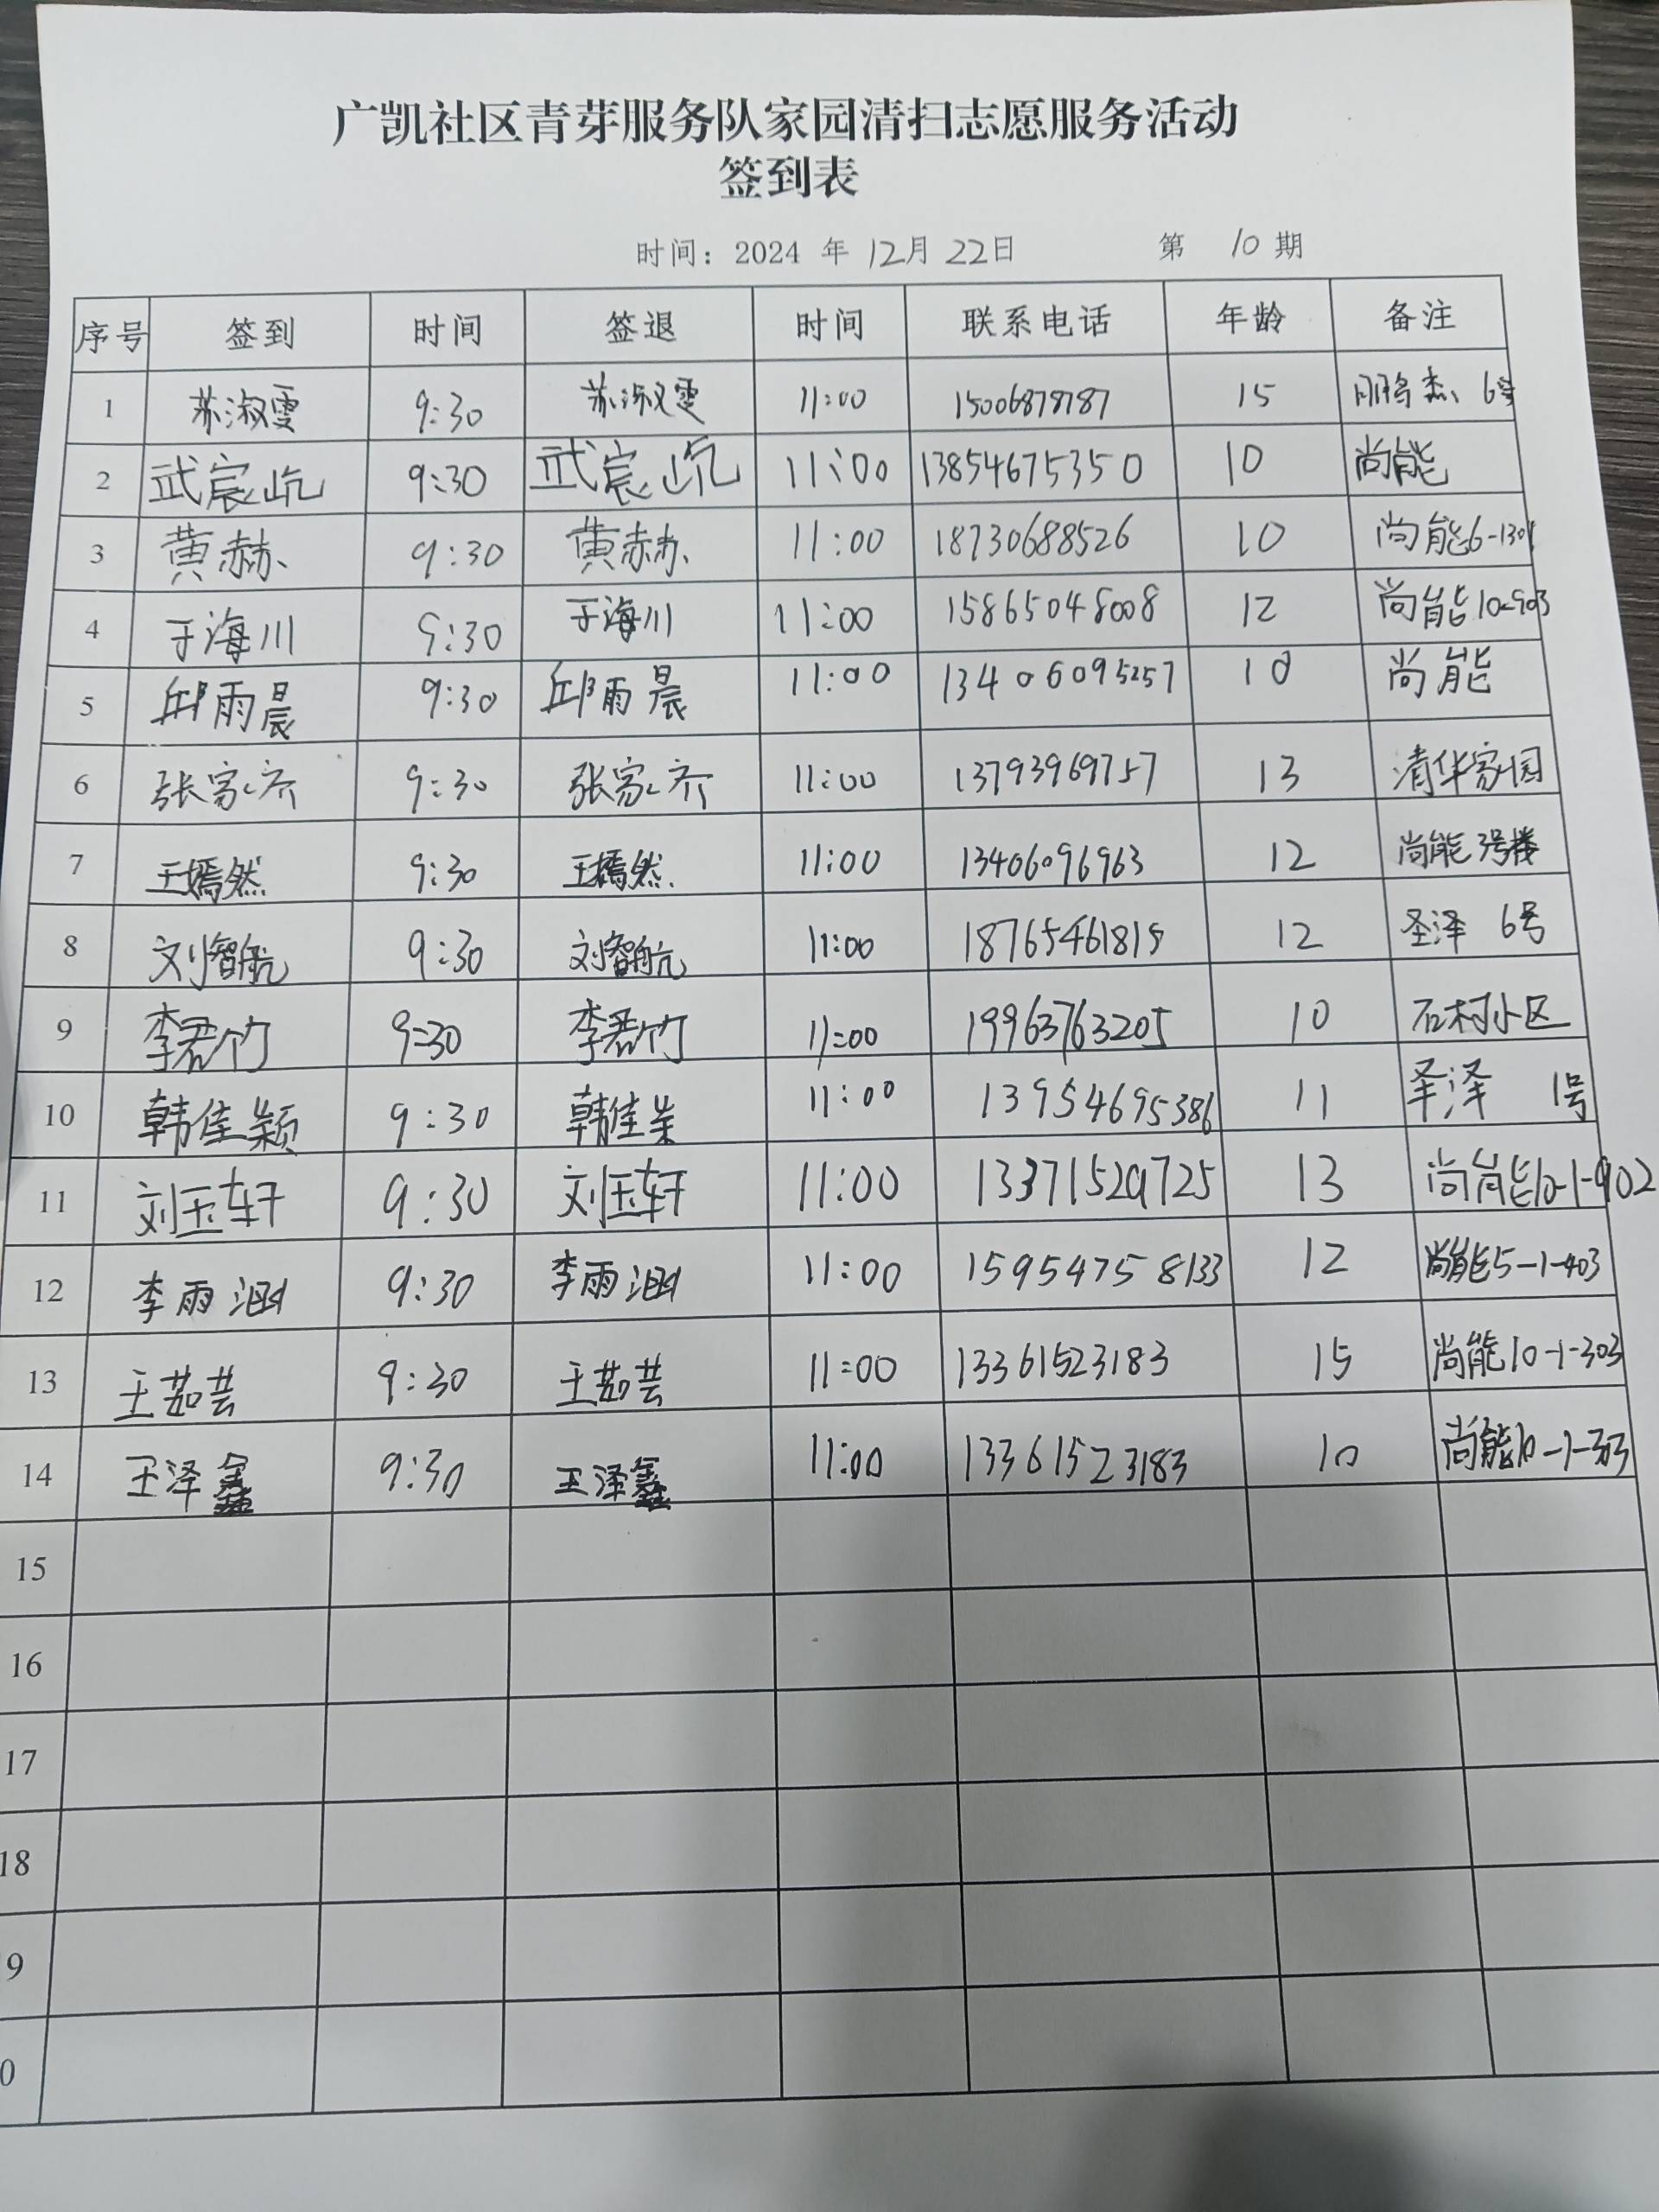 广凯社区青芽服务队家园清扫志愿服务活动
签到表
时间：2024 年 12月 22日 第 10 期
序号 签到 时间 签退 时间 联系电话 年龄 备注
1 苏淑雯 9:30 苏淑雯 11:00 15006878787 15 6号
2 武宸屹 9:30 武宸屹 11:00 13854675350 10 尚能
3 黄赫 9:30 黄赫 11:00 18730688526 10 尚能6-1301
4 于海川 9:30 于海川 11:00 15865048008 12 尚能10-903
5 邱雨晨 9:30 邱雨晨 11:00 13406095257 10 尚能
6 张家齐 9:30 张家齐 11:00 13793969757 13 清华家园
7 王嫣然 9:30 王嫣然 11:00 13406096963 12 尚能 3号楼
8 刘智航 9:30 刘智航 11:00 18765461815 12 圣泽 6号
9 李君竹 9:30 李君竹 11:00 19963763205 10 石村小区
10 韩佳颖 9:30 韩佳 11:00 13954695386 11 圣泽 1号
11 刘玉轩 9:30 刘玉轩 11:00 13371529725 13 尚能10-1-902
12 李雨涵 9:30 李雨涵 11:00 15954758133 12 尚能5-1-403
13 王茹芸 9:30 王茹芸 11:00 13361523183 15 尚能10-1-303
14 王泽鑫 9:30 王泽鑫 11:00 13361523183 10 尚能10-1-303
15
16
17
18
9
0